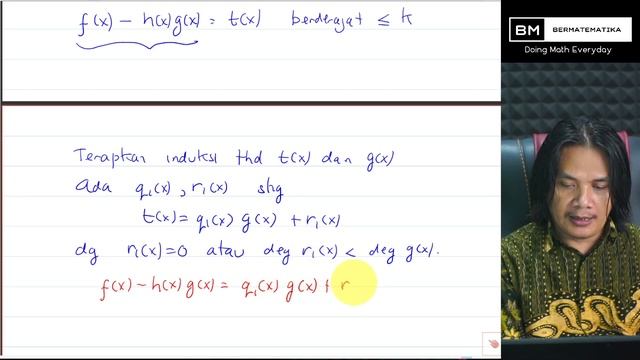 f(x) − h(x)g(x) = t(x) berderajat ≤ k
BM BERMATEMATIKA
Doing Math Everyday
Terapkan induksi thd t(x) dan g(x)
Ada q₁(x), r₁(x) shg
t(x) = q₁(x) g(x) + r₁(x)
dg r₁(x)=0 atau deg r₁(x) < deg g(x).
f(x) − h(x) g(x) = q₁(x) g(x) + r